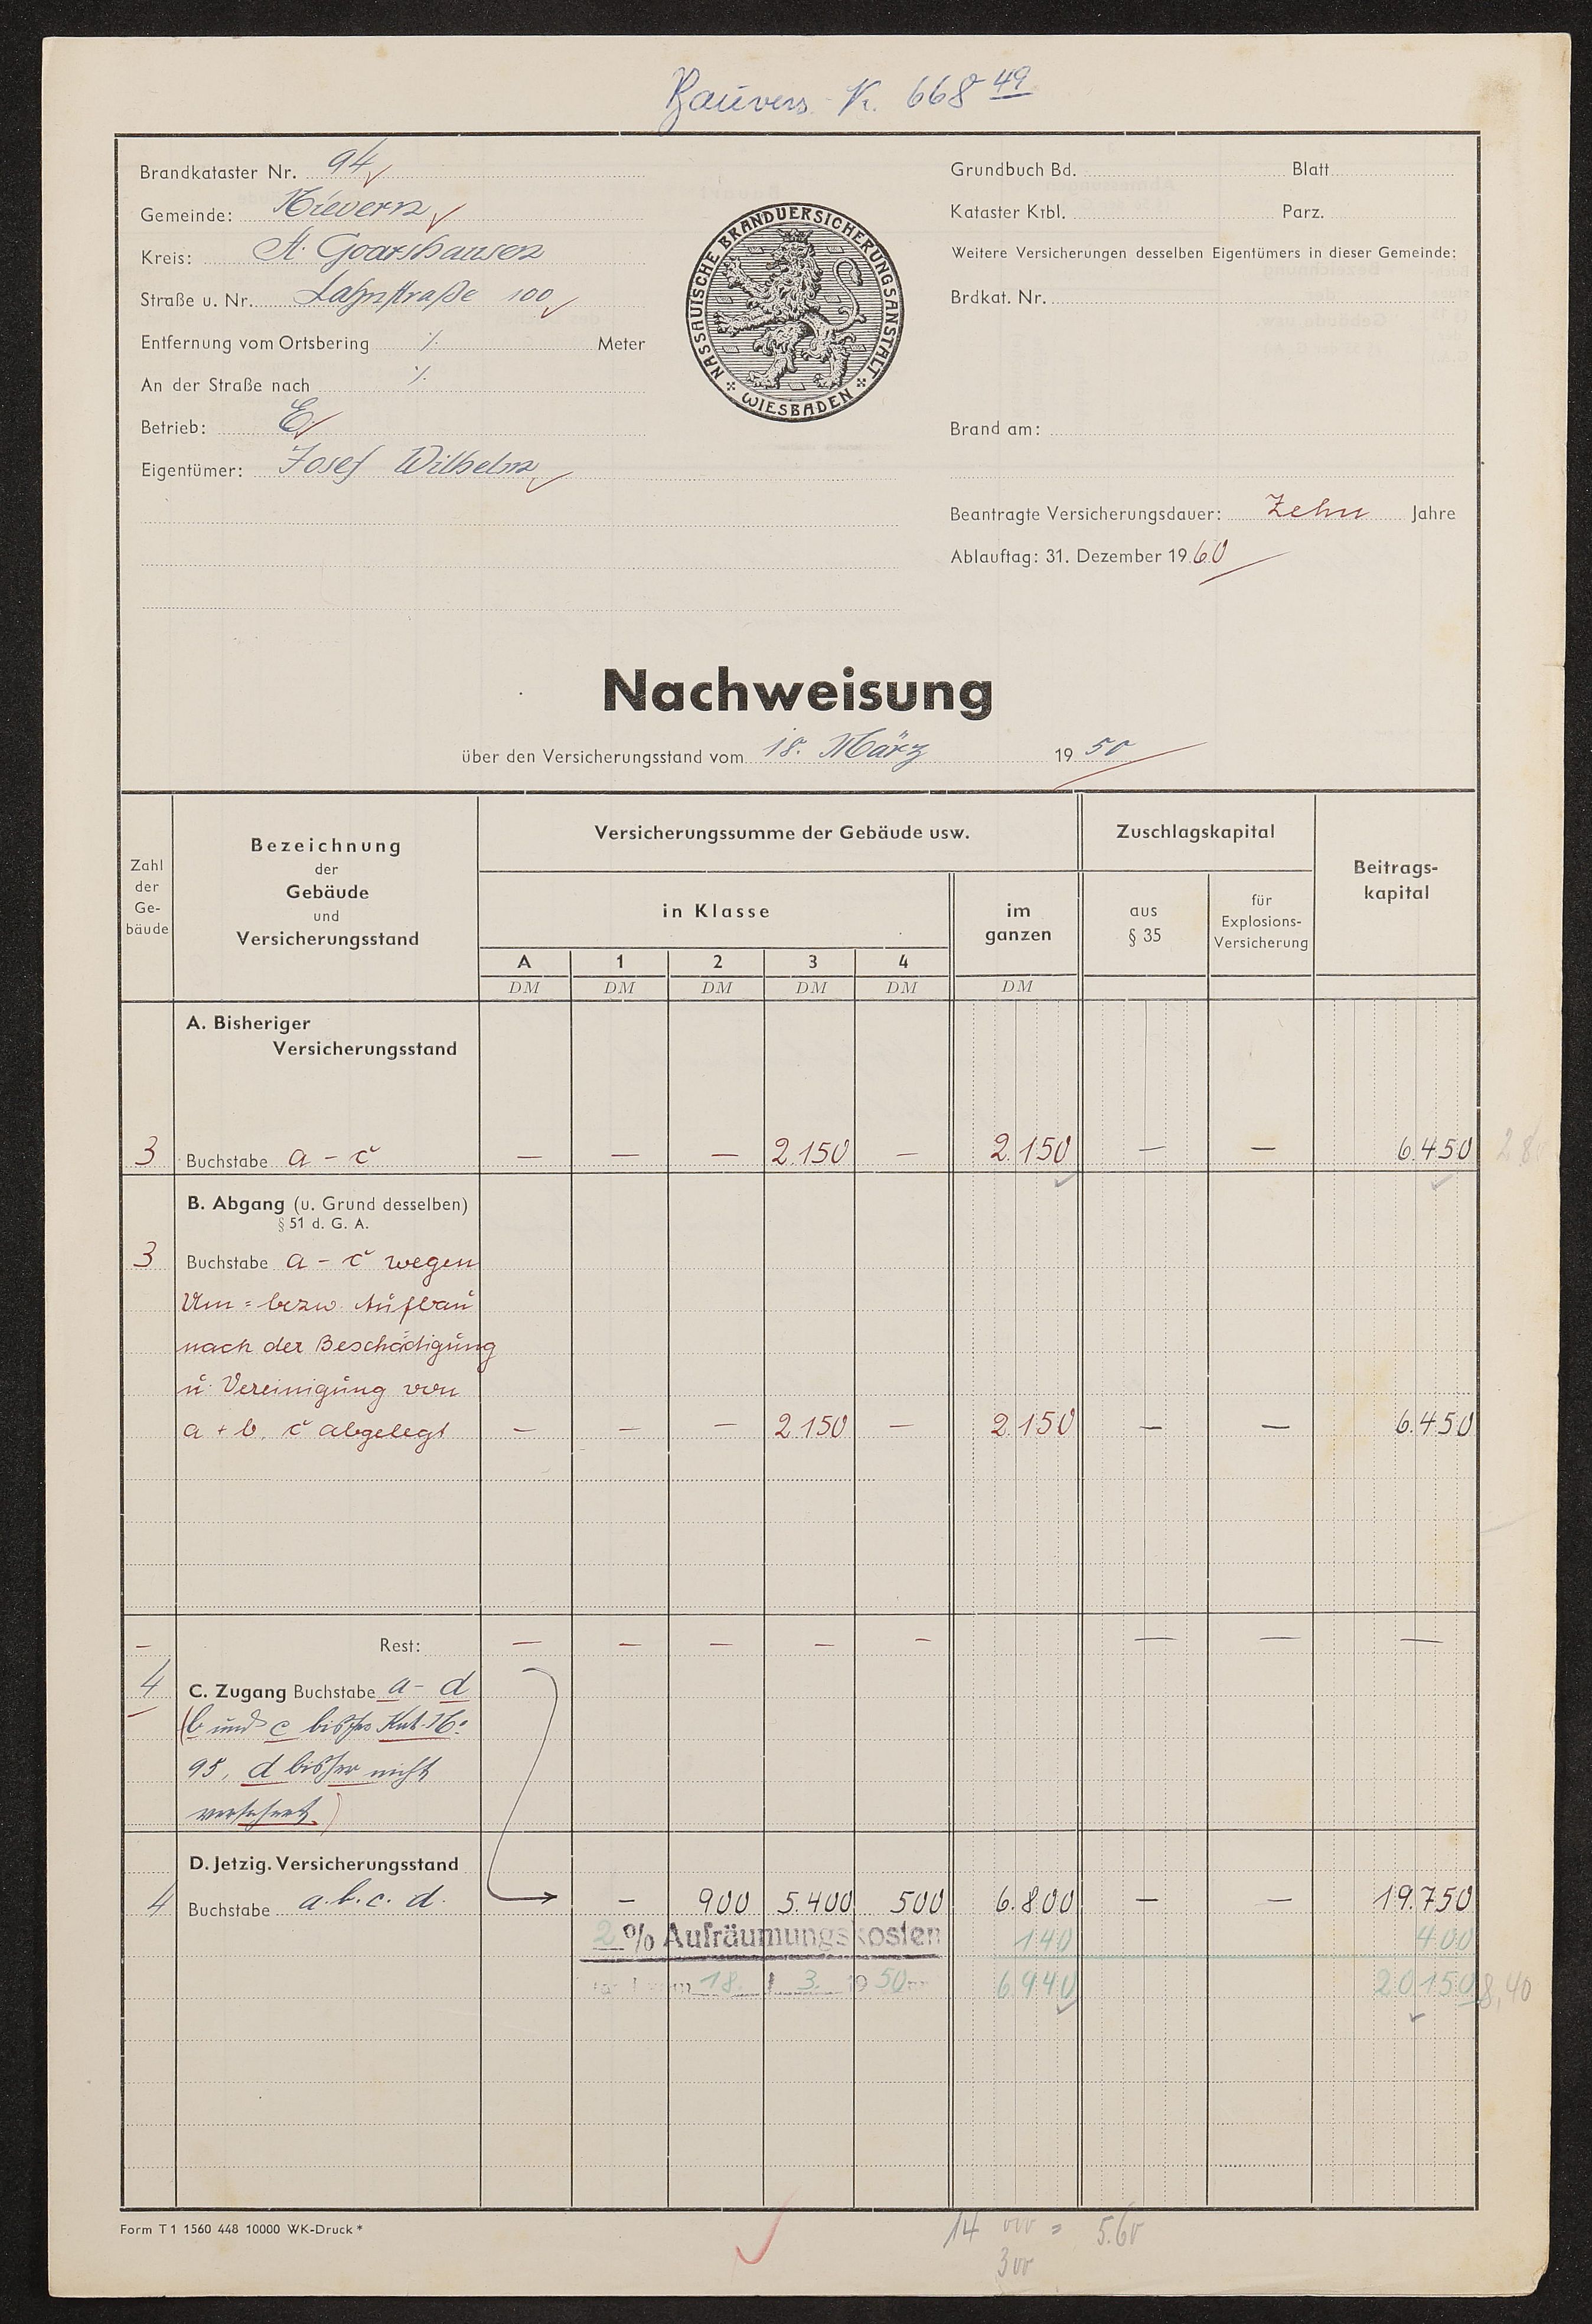 Bauvers. Nr. 668 49
Brandkataster Nr. 94
Gemeinde: Nievern
Kreis: St. Goarshausen
Straße u. Nr. Lahnstraße 100
Entfernung vom Ortsbering ./. Meter
An der Straße nach ./.
Betrieb: E
Eigentümer: Josef Wilhelm
NASSAUISCHE BRANDVERSICHERUNGSANSTALT
WIESBADEN
Grundbuch Bd. Blatt
Kataster Ktbl. Parz.
Weitere Versicherungen desselben Eigentümers in dieser Gemeinde:
Brdkat. Nr.
Brand am:
Beantragte Versicherungsdauer: Zehn Jahre
Ablauftag: 31. Dezember 1960
Nachweisung
über den Versicherungsstand vom 18. März 1950
Zahl der Ge-bäude
Bezeichnung
der
Gebäude
und
Versicherungsstand
Versicherungssumme der Gebäude usw.
in Klasse
A 1 2 3 4
DM DM DM DM DM
im ganzen
DM
Zuschlagskapital
aus § 35
für Explosions-Versicherung
Beitrags-kapital
A. Bisheriger
Versicherungsstand
3 Buchstabe a – c — — — 2.150 — 2.150 — — 6.450
B. Abgang (u. Grund desselben)
§ 51 d. G. A.
3 Buchstabe a – c wegen
Um = bezw. Aufbau
nach der Beschädigung
u. Vereinigung von
a + b, c abgelegt — — — 2.150 — 2.150 — — 6.450
– Rest: — — — — — — — —
4 C. Zugang Buchstabe a – d
(b und c bisher Kat. No
95, d bisher nicht
versichert.)
D. Jetzig. Versicherungsstand
4 Buchstabe a. b. c. d. – 900 5.400 500 6.800 — — 19.750
2 % Aufräumungskosten 140 400
18. 3. 1950 6940 20150 8,40
14 000 = 5.60
300
Form T 1 1560 448 10000 WK-Druck *